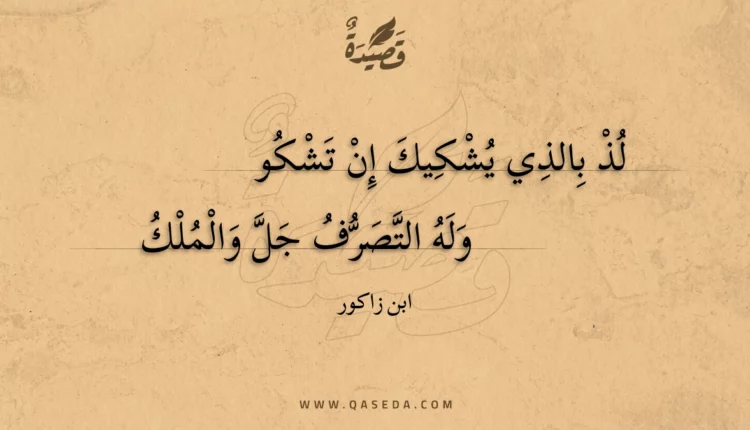 قَصِيْدَةٌ
لُذْ بِالذِي يُشْكِيكَ إِنْ تَشْكُو
وَلَهُ التَّصَرُّفُ جَلَّ وَالْمُلْكُ
ابن زاكور
WWW.QASEDA.COM